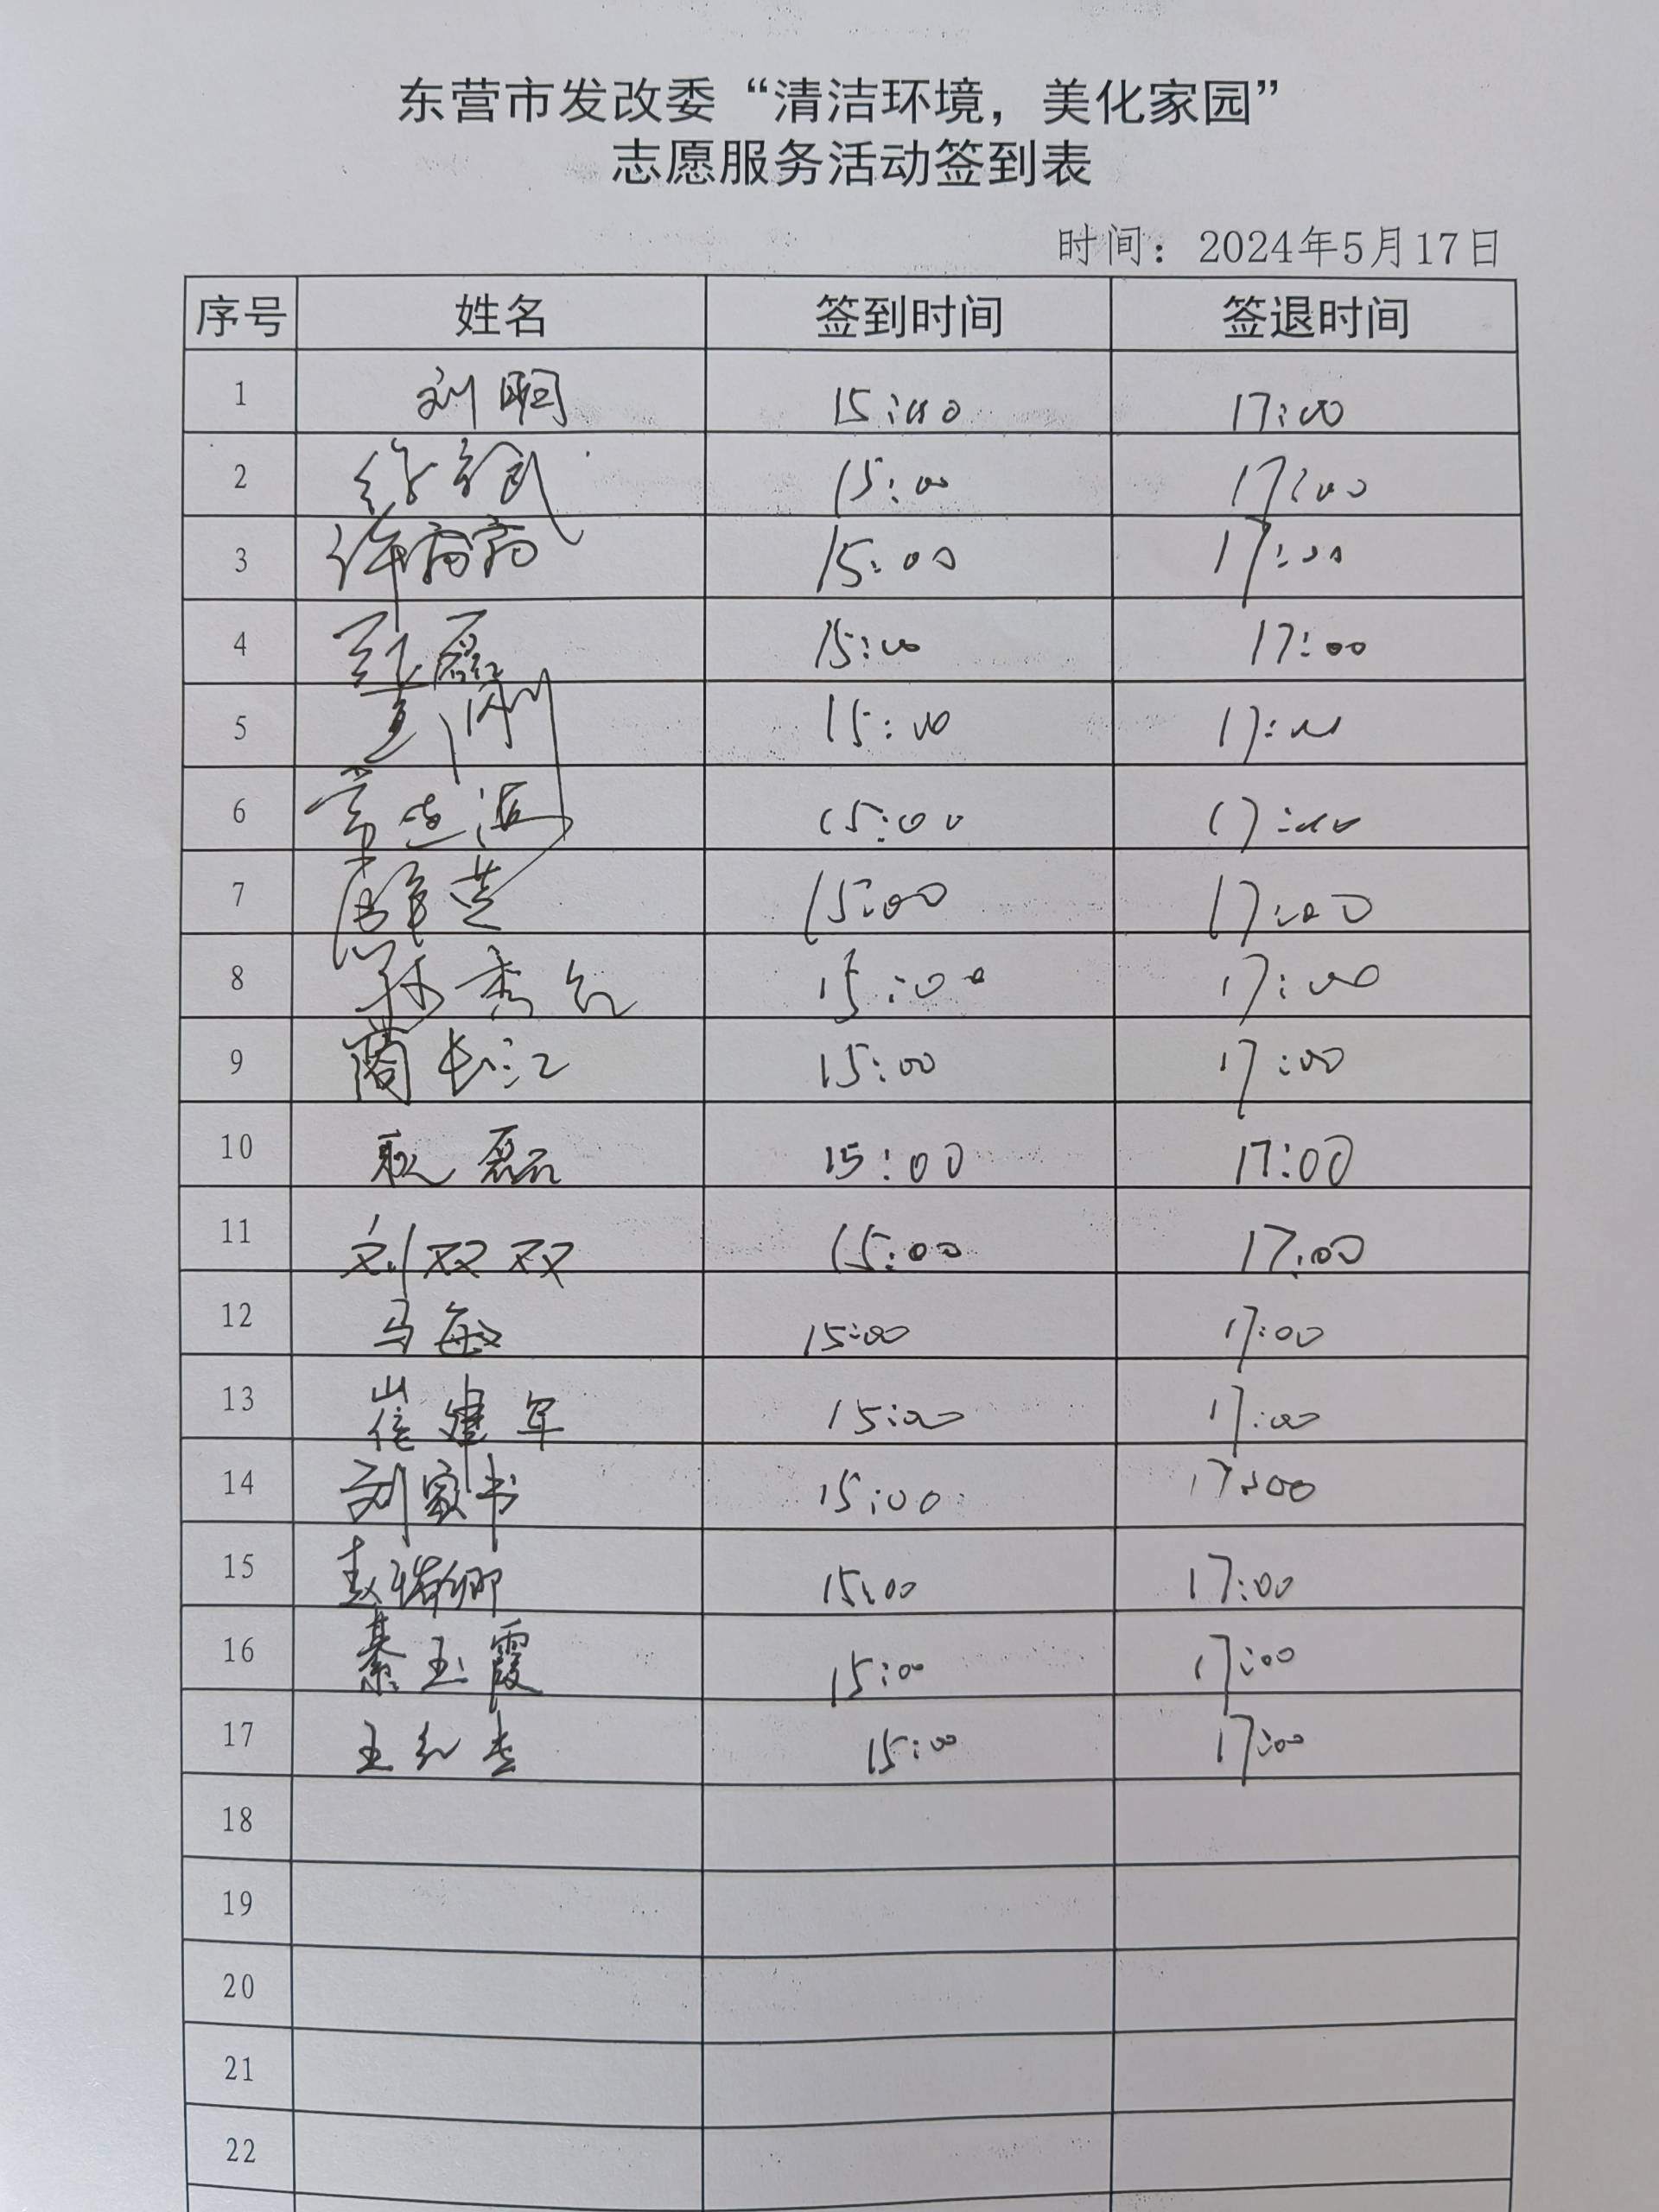 东营市发改委“清洁环境，美化家园”
志愿服务活动签到表
时间：2024年5月17日
序号 姓名 签到时间 签退时间
1 刘 15:00 17:00
2 15:00 17:00
3 许 15:00 17:00
4 磊 15:00 17:00
5 15:00 17:00
6 常 15:00 17:00
7 15:00 17:00
8 孙秀 15:00 17:00
9 商长江 15:00 17:00
10 耿磊 15:00 17:00
11 刘双双 15:00 17:00
12 马敏 15:00 17:00
13 崔建军 15:00 17:00
14 刘家书 15:00 17:00
15 赵娜 15:00 17:00
16 綦玉霞 15:00 17:00
17 王红 15:00 17:00
18
19
20
21
22